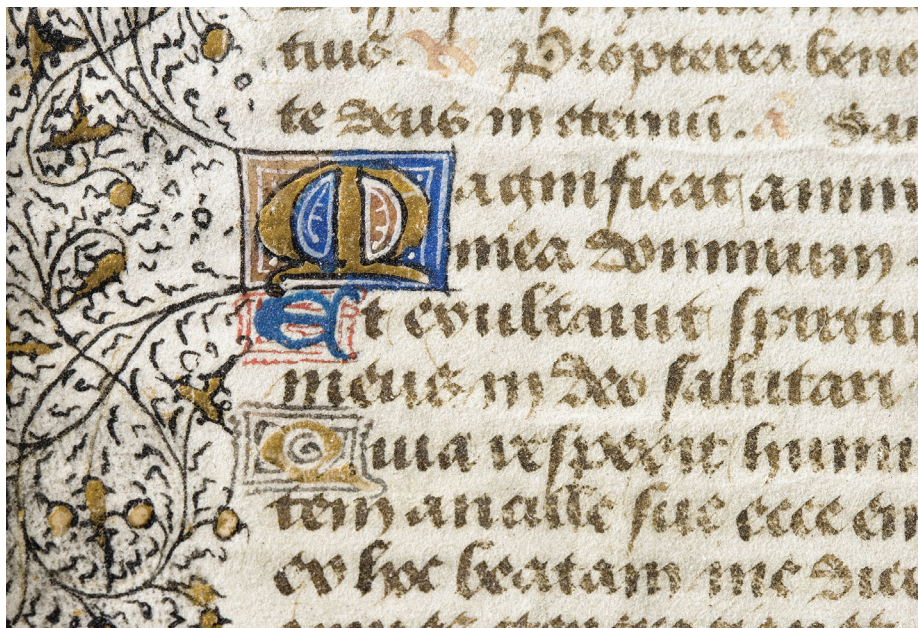 tuus. V Propterea bene
te deus in eternū. ā
Magnificat anim
mea dominum
Et exultauit spiritu
meus in deo salutari
Quia respexit humi
tem ancille sue ecce en
ex hoc beatam me dice